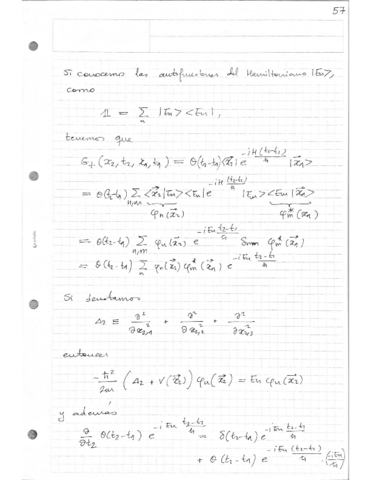 57
Si conocemos las autofunciones del Hamiltoniano |En>,
como
𝟙 = Σ_n |En> <En|,
tenemos que
G+(x2, t2, x1, t1) = θ(t2-t1) <x⃗2| e^{-iH(t2-t1)/ħ} |x⃗1>
= θ(t2-t1) Σ_{n,m} <x⃗2|En> <En| e^{-iH(t2-t1)/ħ} |Em> <Em|x⃗1>
φn(x⃗2) φm*(x⃗1)
= θ(t2-t1) Σ_{n,m} φn(x⃗2) e^{-iEn (t2-t1)/ħ} δnm φm*(x⃗1)
= θ(t2-t1) Σ_n φn(x⃗2) φn*(x⃗1) e^{-iEn (t2-t1)/ħ}
Si denotamos
Δ2 ≡ ∂²/∂x²2,1 + ∂²/∂x²2,2 + ∂²/∂x²2,3
entonces
-ħ²/2m (Δ2 + V(x⃗2)) φn(x⃗2) = En φn(x⃗2)
y además
∂/∂t2 θ(t2-t1) e^{-iEn (t2-t1)/ħ} = δ(t2-t1) e^{-iEn (t2-t1)/ħ}
+ θ(t2-t1) e^{-iEn (t2-t1)/ħ} · (-iEn/ħ)